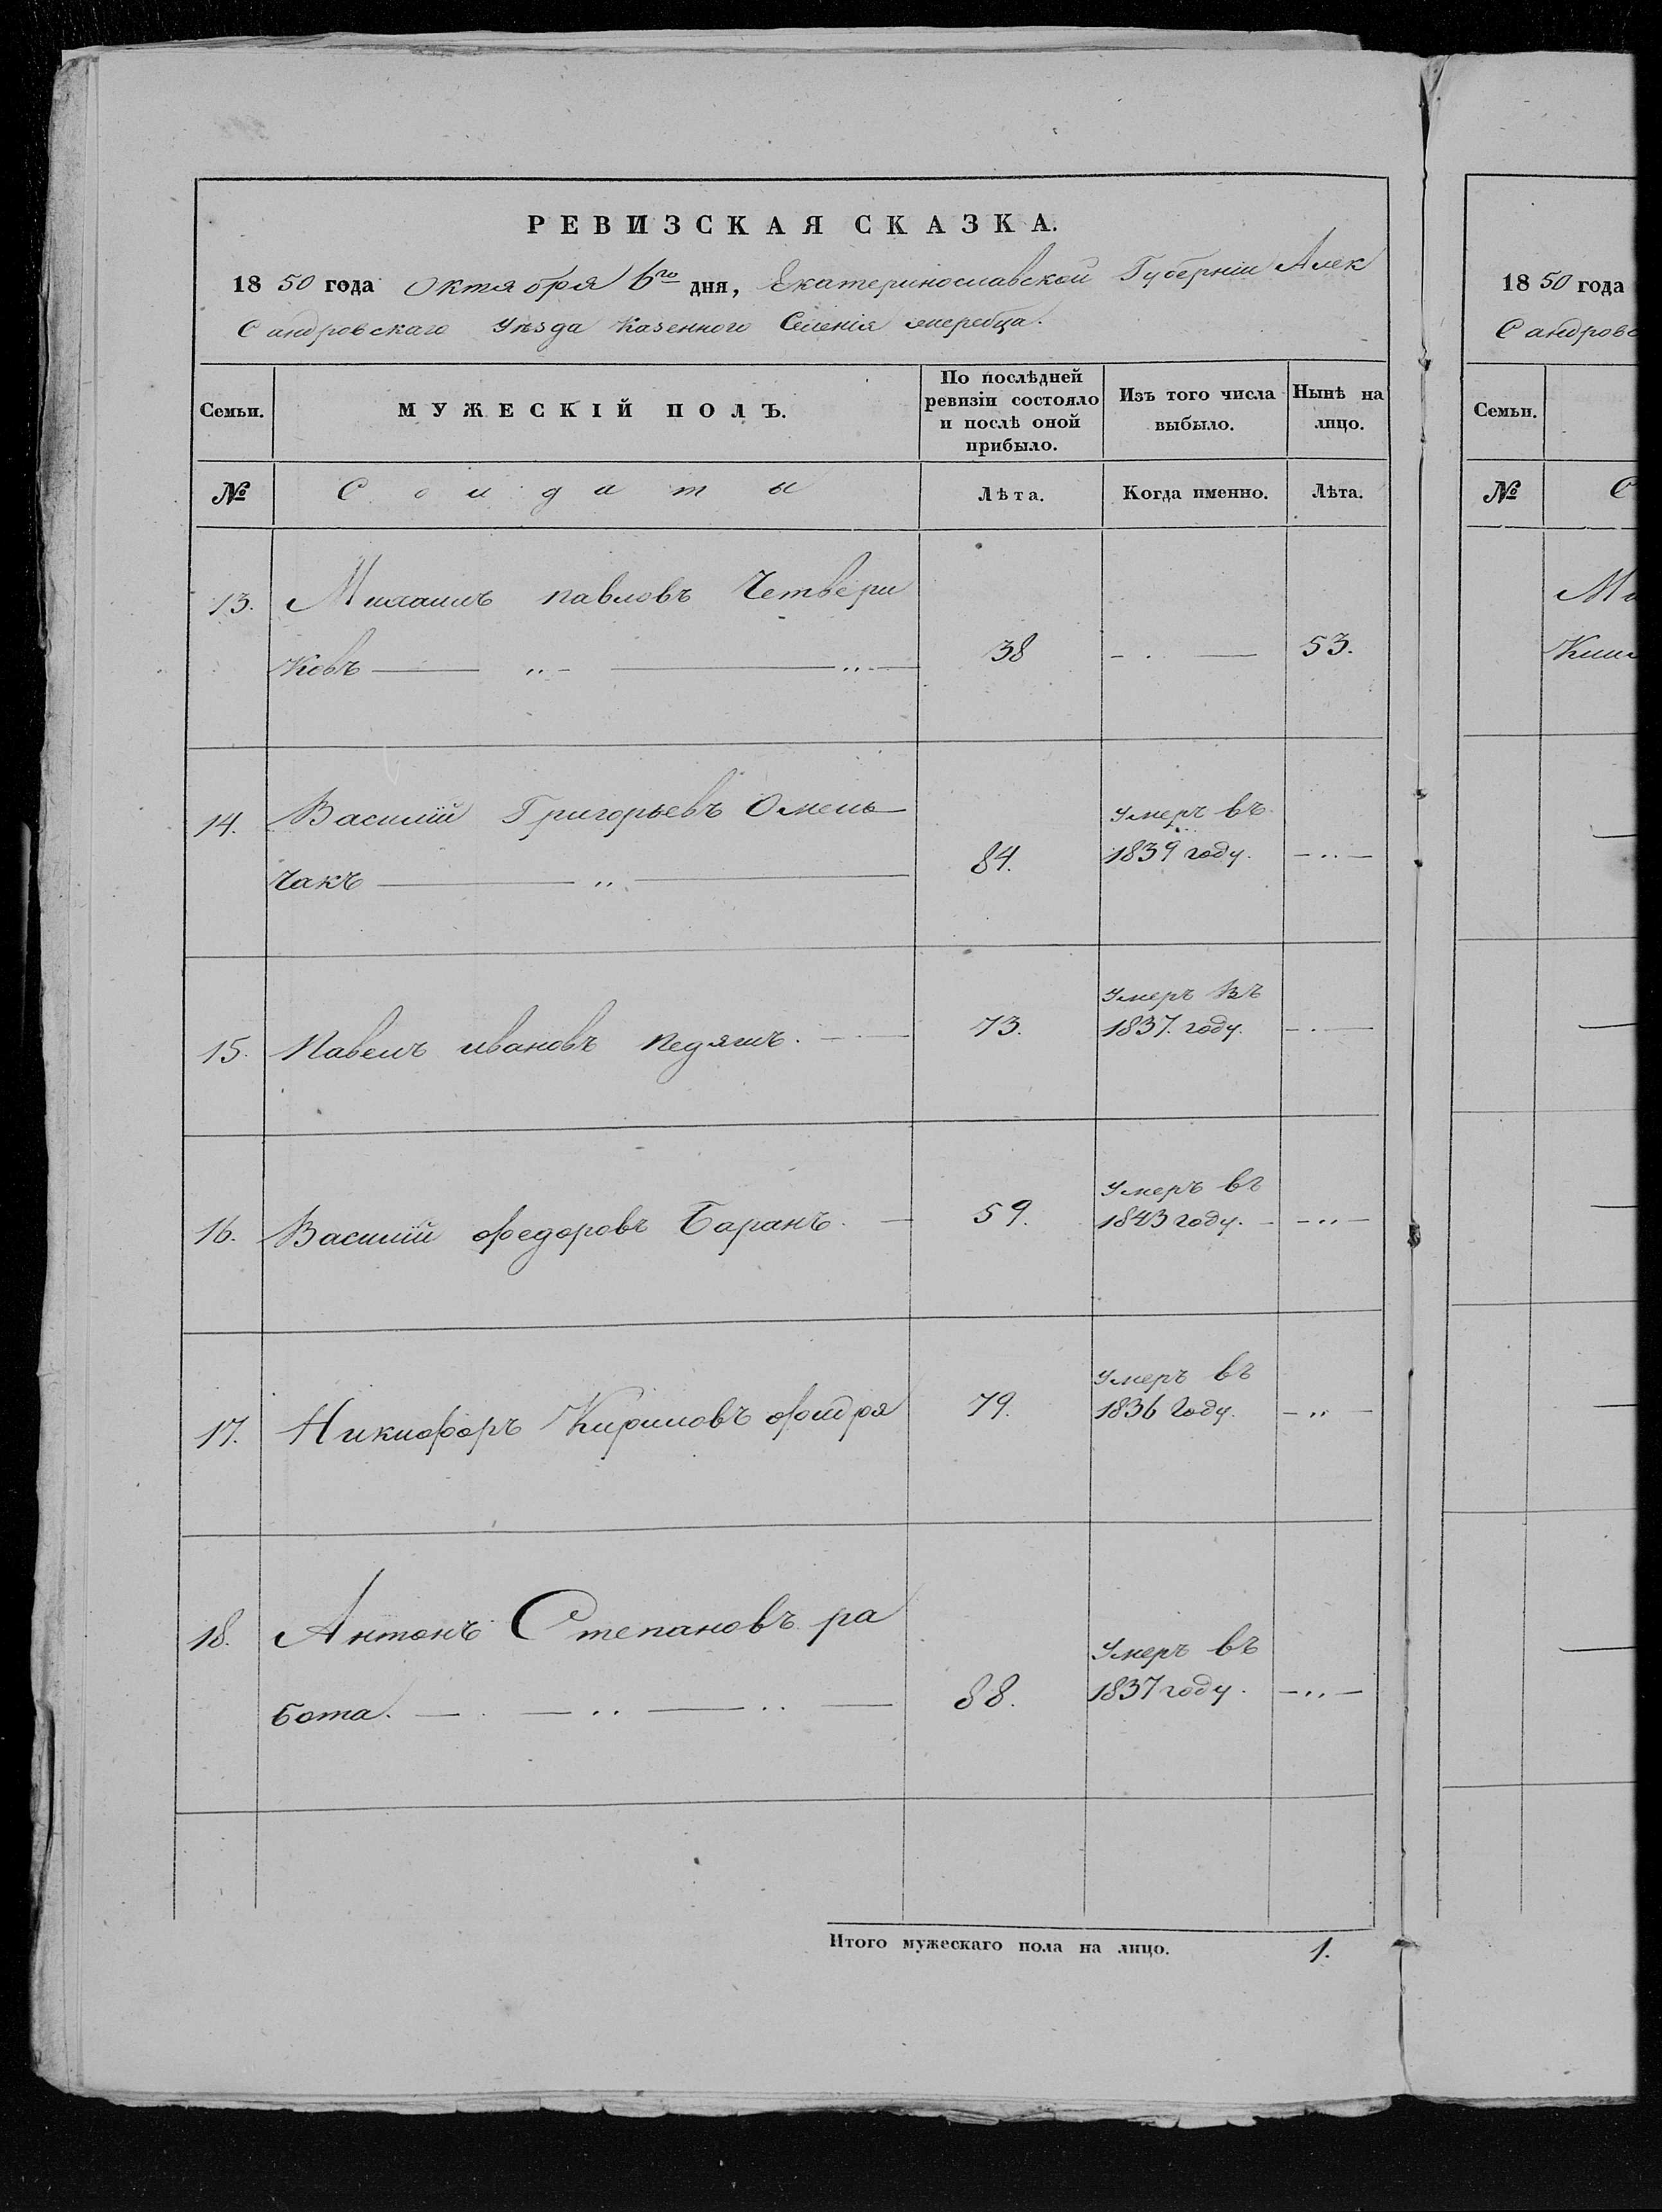 РЕВИЗСКАЯ СКАЗКА.
1850 года Октября 6го дня, Екатеринославской Губернїи Алек
Сандровскаго Уѣзда Казенного Селенїя жеребца.
Семьи.
МУЖЕСКІЙ ПОЛЪ.
По послѣдней ревизіи состояло и послѣ оной прибыло.
Изъ того числа выбыло.
Нынѣ на лицо.
№
Солдаты
Лѣта.
Когда именно.
Лѣта.
13. Михаилъ павловъ Четвери
ковъ 38 53.
14. Василїй Григорьевъ Омель Умеръ въ
чакъ 84. 1839 году.
15. Павелъ ивановъ педяшъ. 73. Умеръ въ
1837. году.
16. Василїй федоровъ Баранъ. 59. Умеръ въ
1843 году.
17. Никифоръ Кириловъ 79. Умеръ въ
1836 году.
18. Антонъ Степановъ ра Умеръ въ
бота. 88. 1837 году.
Итого мужескаго пола на лицо. 1.
1850 года
Сандровс
Семьи.
№
С